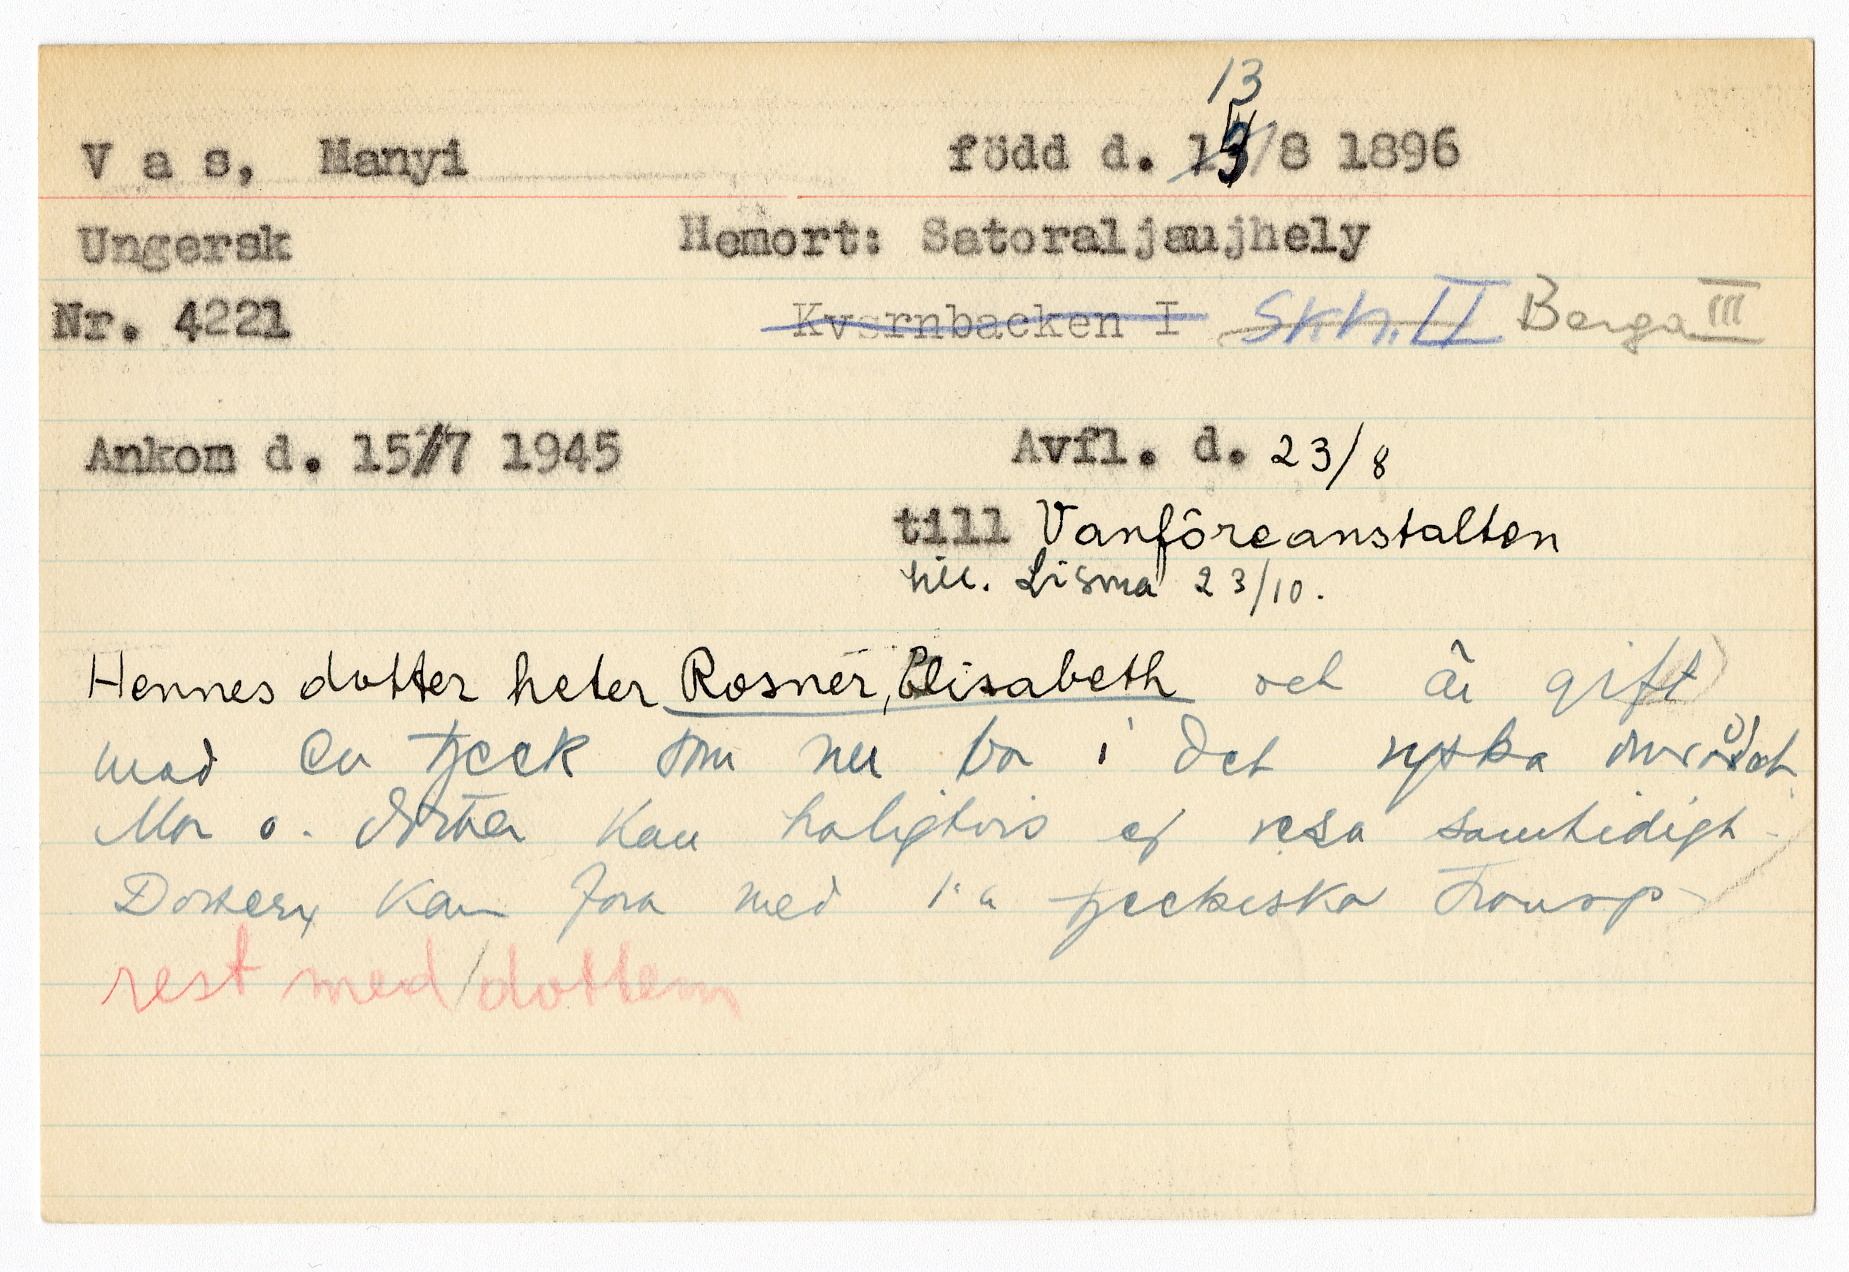 13
V a s, Manyi född d. 13/8 1896
Ungersk Hemort: Satoraljaujhely
Nr. 4221 Kvarnbacken I Skh. II Berga III
Ankom d. 15/7 1945 Avfl. d. 23/8
till Vanföreanstalten
till. Lisma 23/10.
Hennes dotter heter Rosner, Elisabeth och är gift
med en tjeck som nu bor i det ryska området
Mor o. dotter kan troligtvis ej resa samtidigt
Dottern kan fara med 1:a tjeckiska transp
rest med dottern